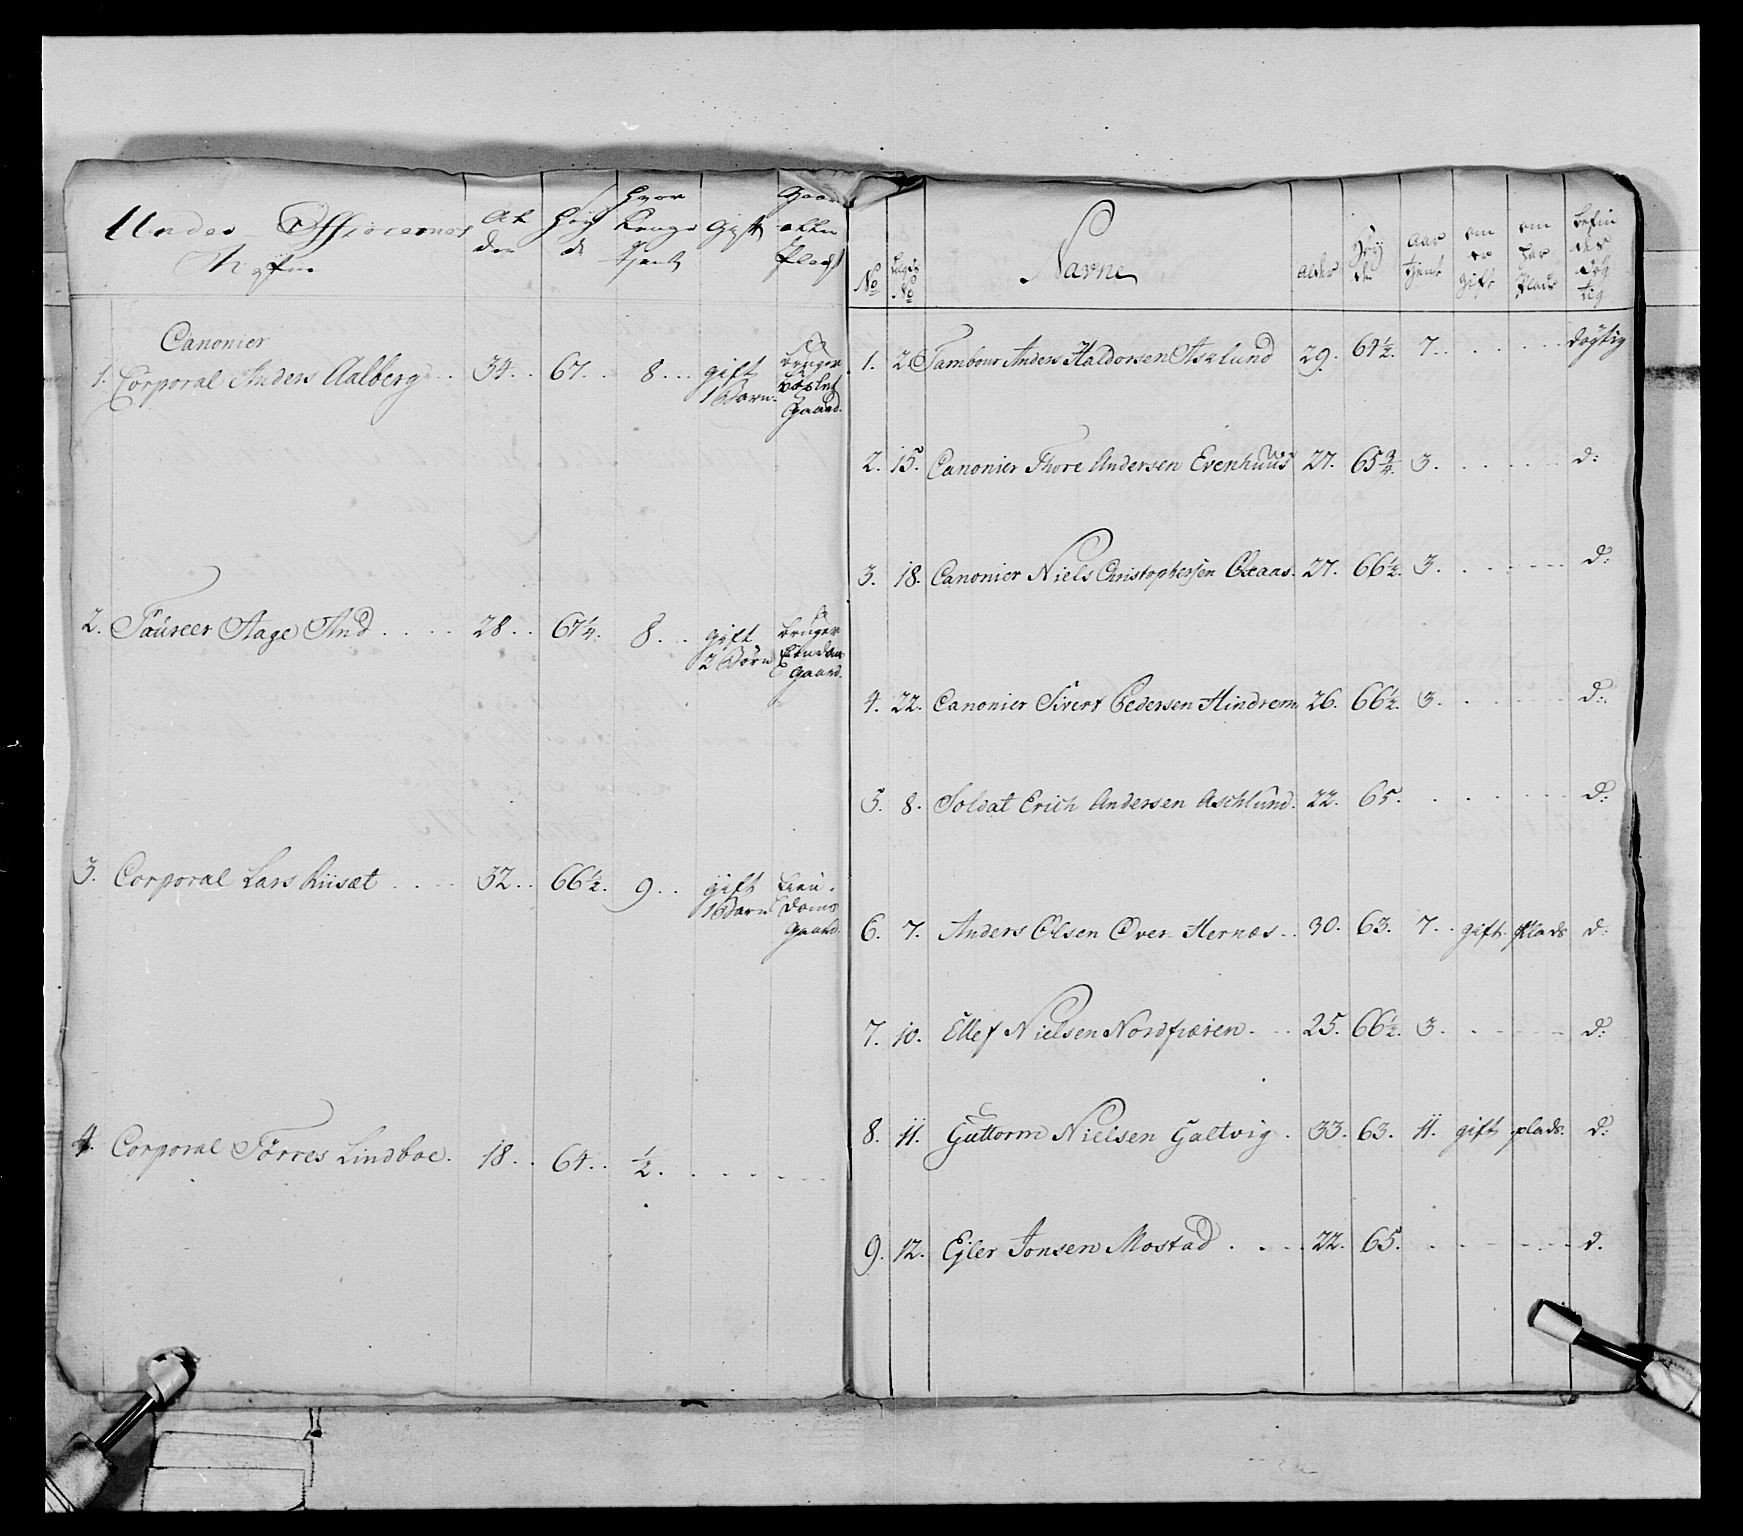 Under Officerernes
Nafne
Al
der
Høy
de
hvor
Længe
tjent
Gift
Gaard
eller
Plads
Canonier
1. Corporal Anders Aalberg . . 34. . 67. . 8. . . gift
1 Barn.
bruger
Gaard.
2. Foureer Aage And . . . . 28. . 67¼. 8. . . gift
2 Børn
bruger
Gaard.
3. Corporal Lars Riisæt . . . . 32. . 66½. 9. . gift
1 Barn
Eien
doms
Gaard.
4. Corporal Torres Lindboe. 18. . 64. . ½. . . . . . .
No
Lægds
No
Navne
alder
Høy
de
aar
tjent
om
er
gift
om
har
Plads
befin
der
døg
tig
1. 2 Tambour Anders Haldorsen Asklund 29. 64½. 7. . . . . . . døgtig
2. 15. Canonier Thore Andersen Evenhuus 27. 65¾. 3. . . . . . . d:
3. 18. Canonier Niels Christophersen 27. 66½. 3. . . . . . . d:
4. 22. Canonier Sivert Pedersen Hindrem 26. 66½. 3. . . . . . . d:
5. 8. Soldat Erich Andersen Aschlund. 22. 65. . . . . . . d:
6. 7. Anders Olsen Over Hernæs. . 30. 63. 7. . gift. Plads d:
7. 10. Ellef Nielsen Nordfiæren. . . 25. 66½. 3. . . . . . d:
8. 11. Guttorm Nielsen Galtvig . 33. 63. 11. gift plads. d:
9. 12. Ejler Jonsen Mostad . . . . 22. 65. . . . . . . d.